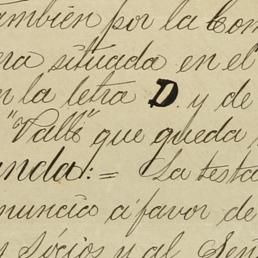 también por la Com
era situada en el
n la letra D. y de
"Valls" que queda
unda: = La testa
nuncia á favor de
y sócios y al Señ